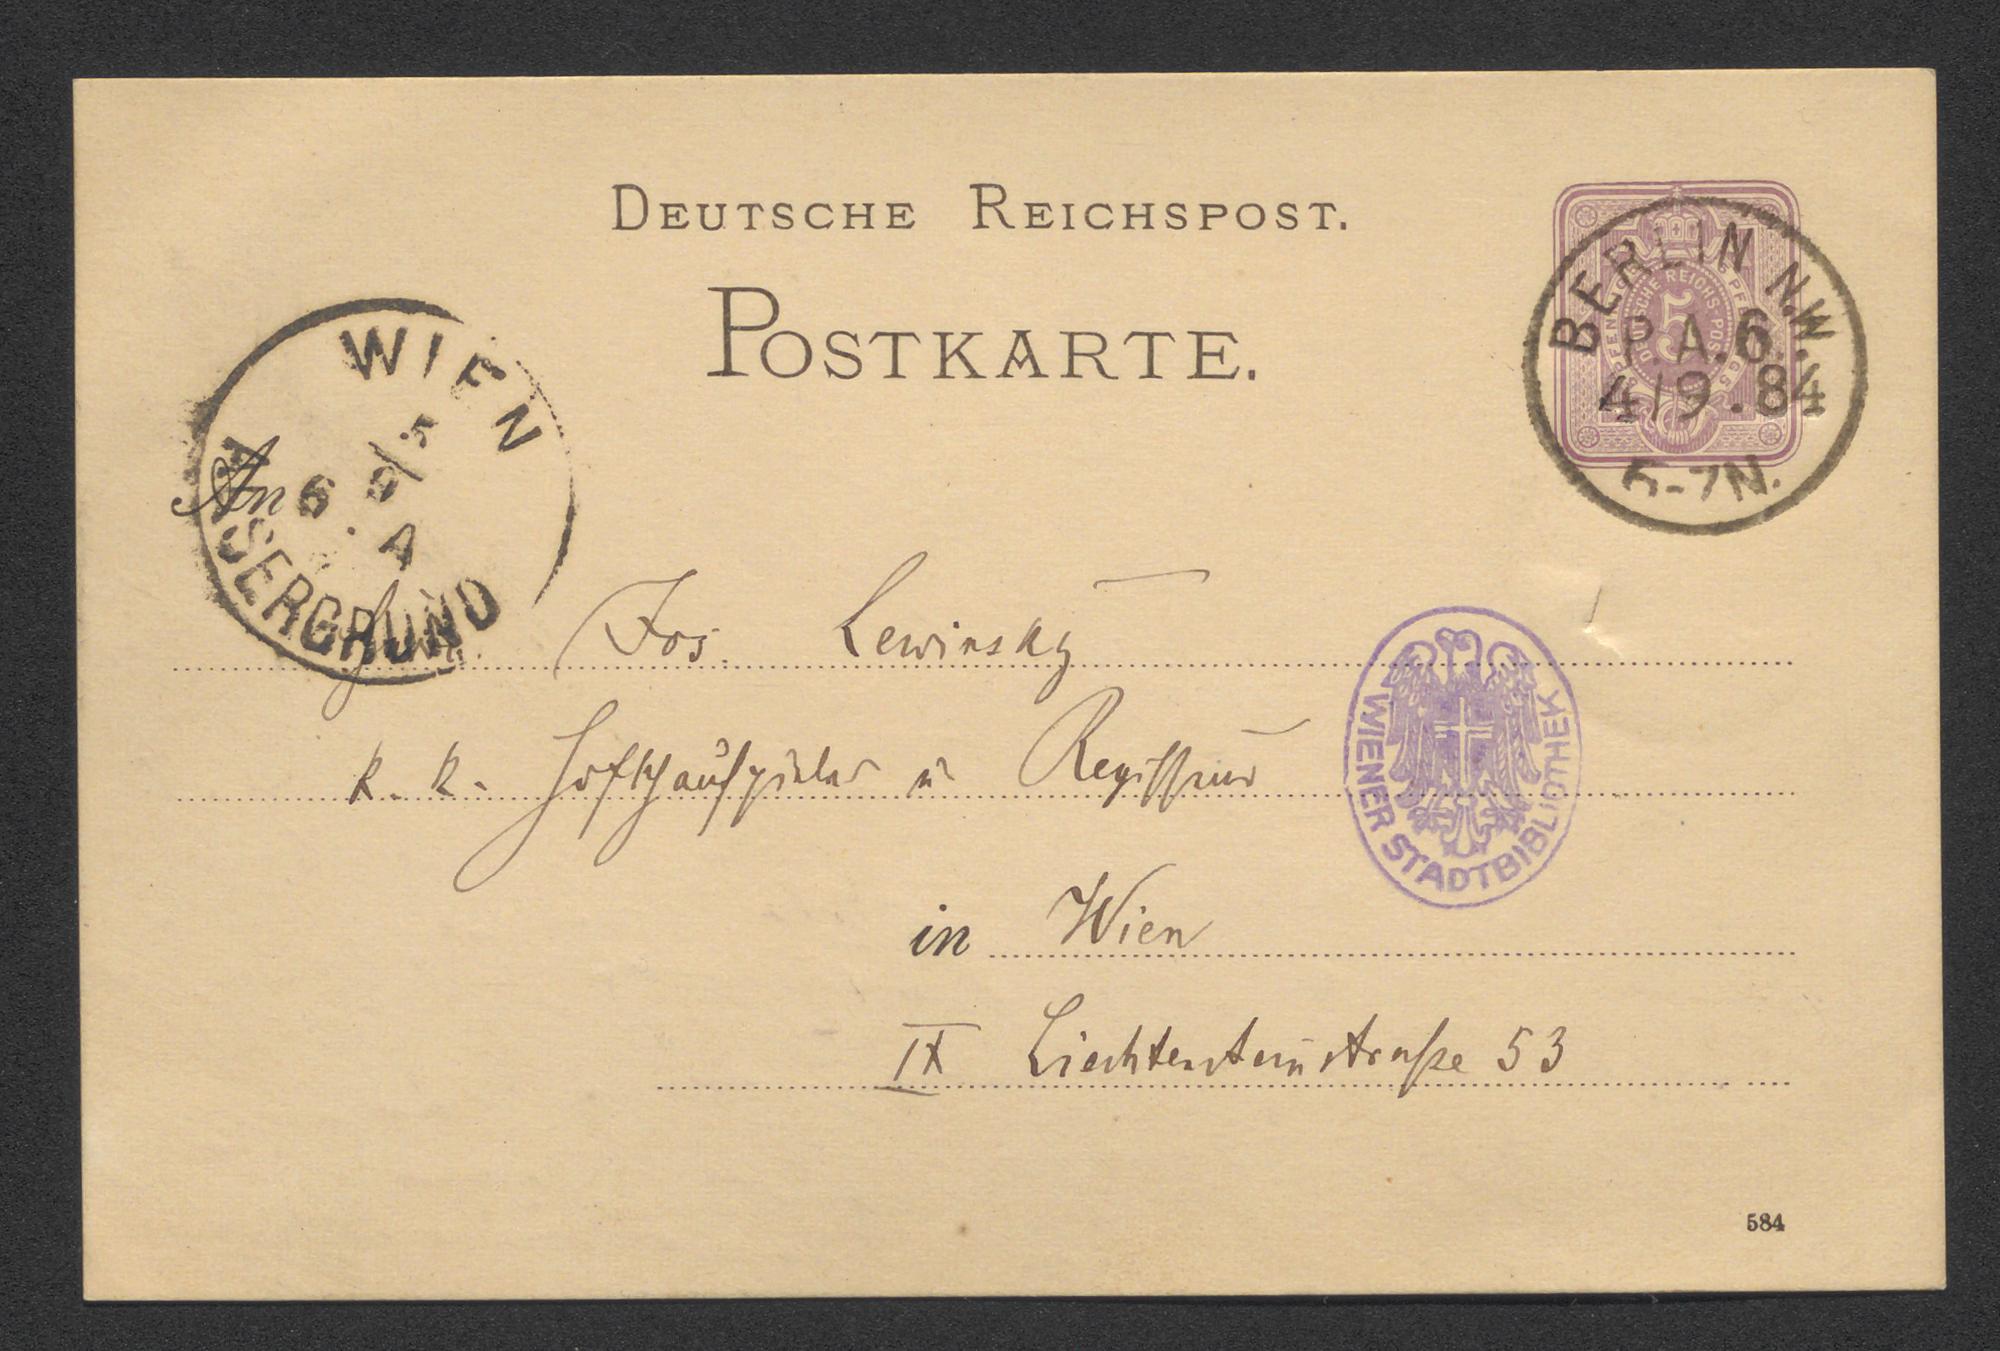 DEUTSCHE REICHSPOST.
POSTKARTE.
BERLIN N.W.
P.A.6.
4/9.84
5-7N.
DEUTSCHE REICHS-POST
5
WIEN
5/9
6. A
ALSERGRUND
An
Jos. Lewinsky
k. k. Hofschauspieler u Regisseur
in Wien
IX Liechtensteinstraße 53
WIENER STADTBIBLIOTHEK
584